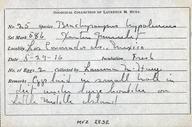 OOLOGICAL COLLECTION OF LAURENCE M. HUEY.
No. 25 Species Brachyramphus hypoleucus
Set Mark 886 Xantus Murrelet
Locality Los Coronados Is., Mexico
Date 5-27-16 Incubation Fresh
No. of Eggs 2 Collected by Laurence M. Huey
Remarks Eggs laid in small hole in
dirt under large boulder on
little middle island
MVZ